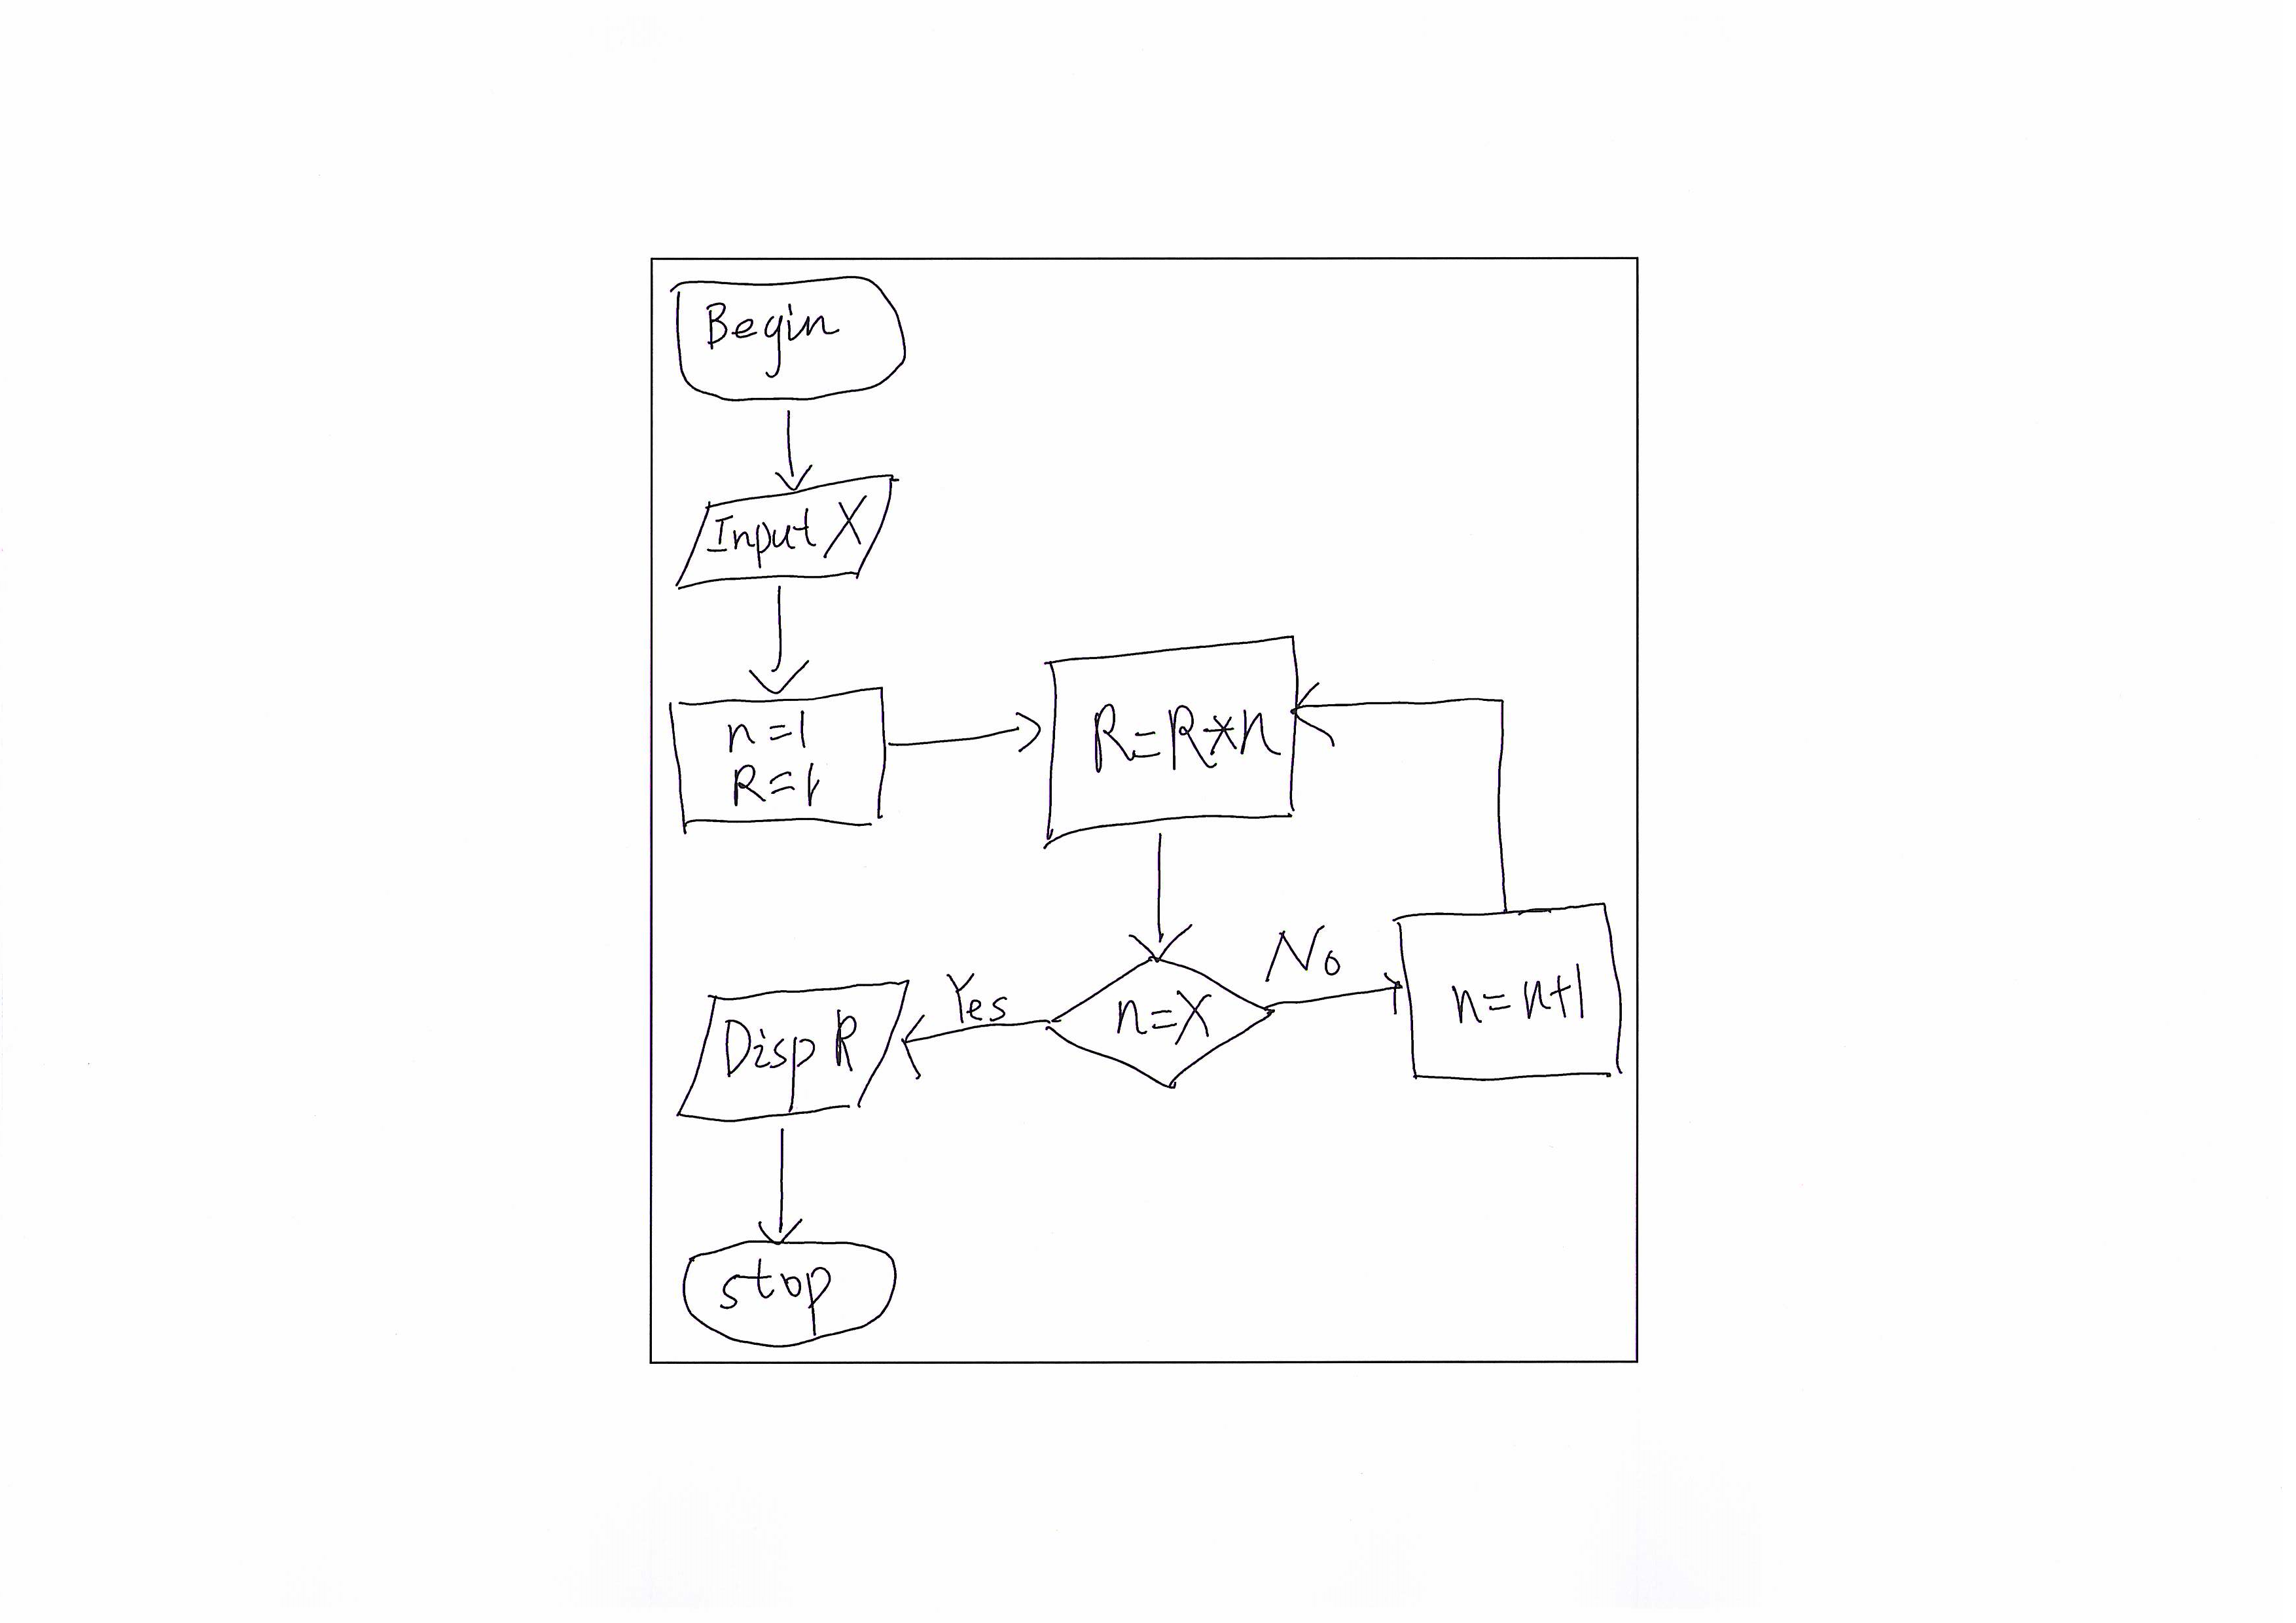 Begin
Input X
n=1
R=1
R=R*n
n=X
Yes
No
n=n+1
Disp R
stop